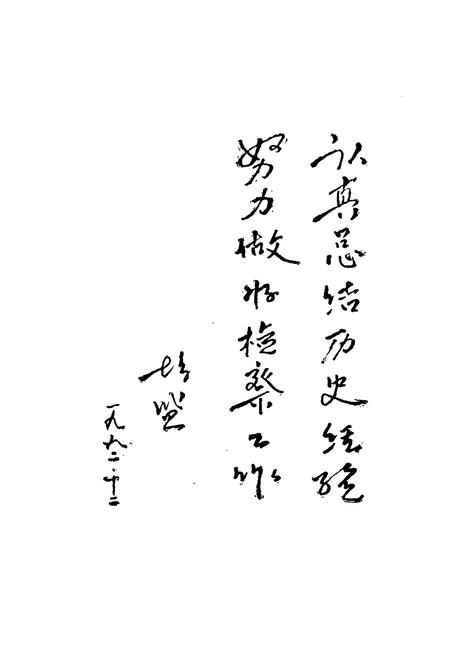 认真总结历史经验
努力做好检察工作
一九九二·十二